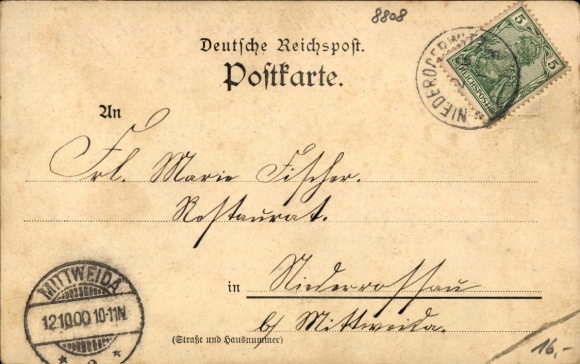 8808
Deutsche Reichspost.
Postkarte.
5
5
REICHSPOST
An
Frl. Marie Fischer.
Restaurat.
in Niederrossau
b/ Mittweida.
(Straße und Hausnummer)
MITTWEIDA
12.10.00 10-11N.
16,-